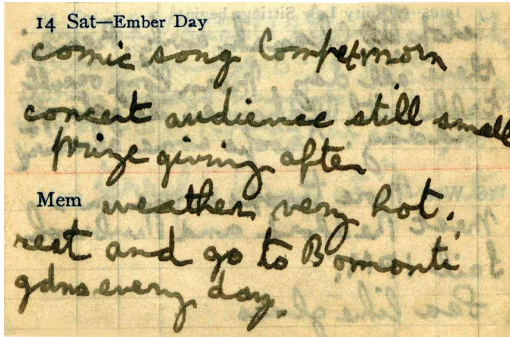 14 Sat—Ember Day
comic song Competmorn
concert audience still small
prize giving after
Mem weather very hot.
rest and go to Bomonti
gdns every day.